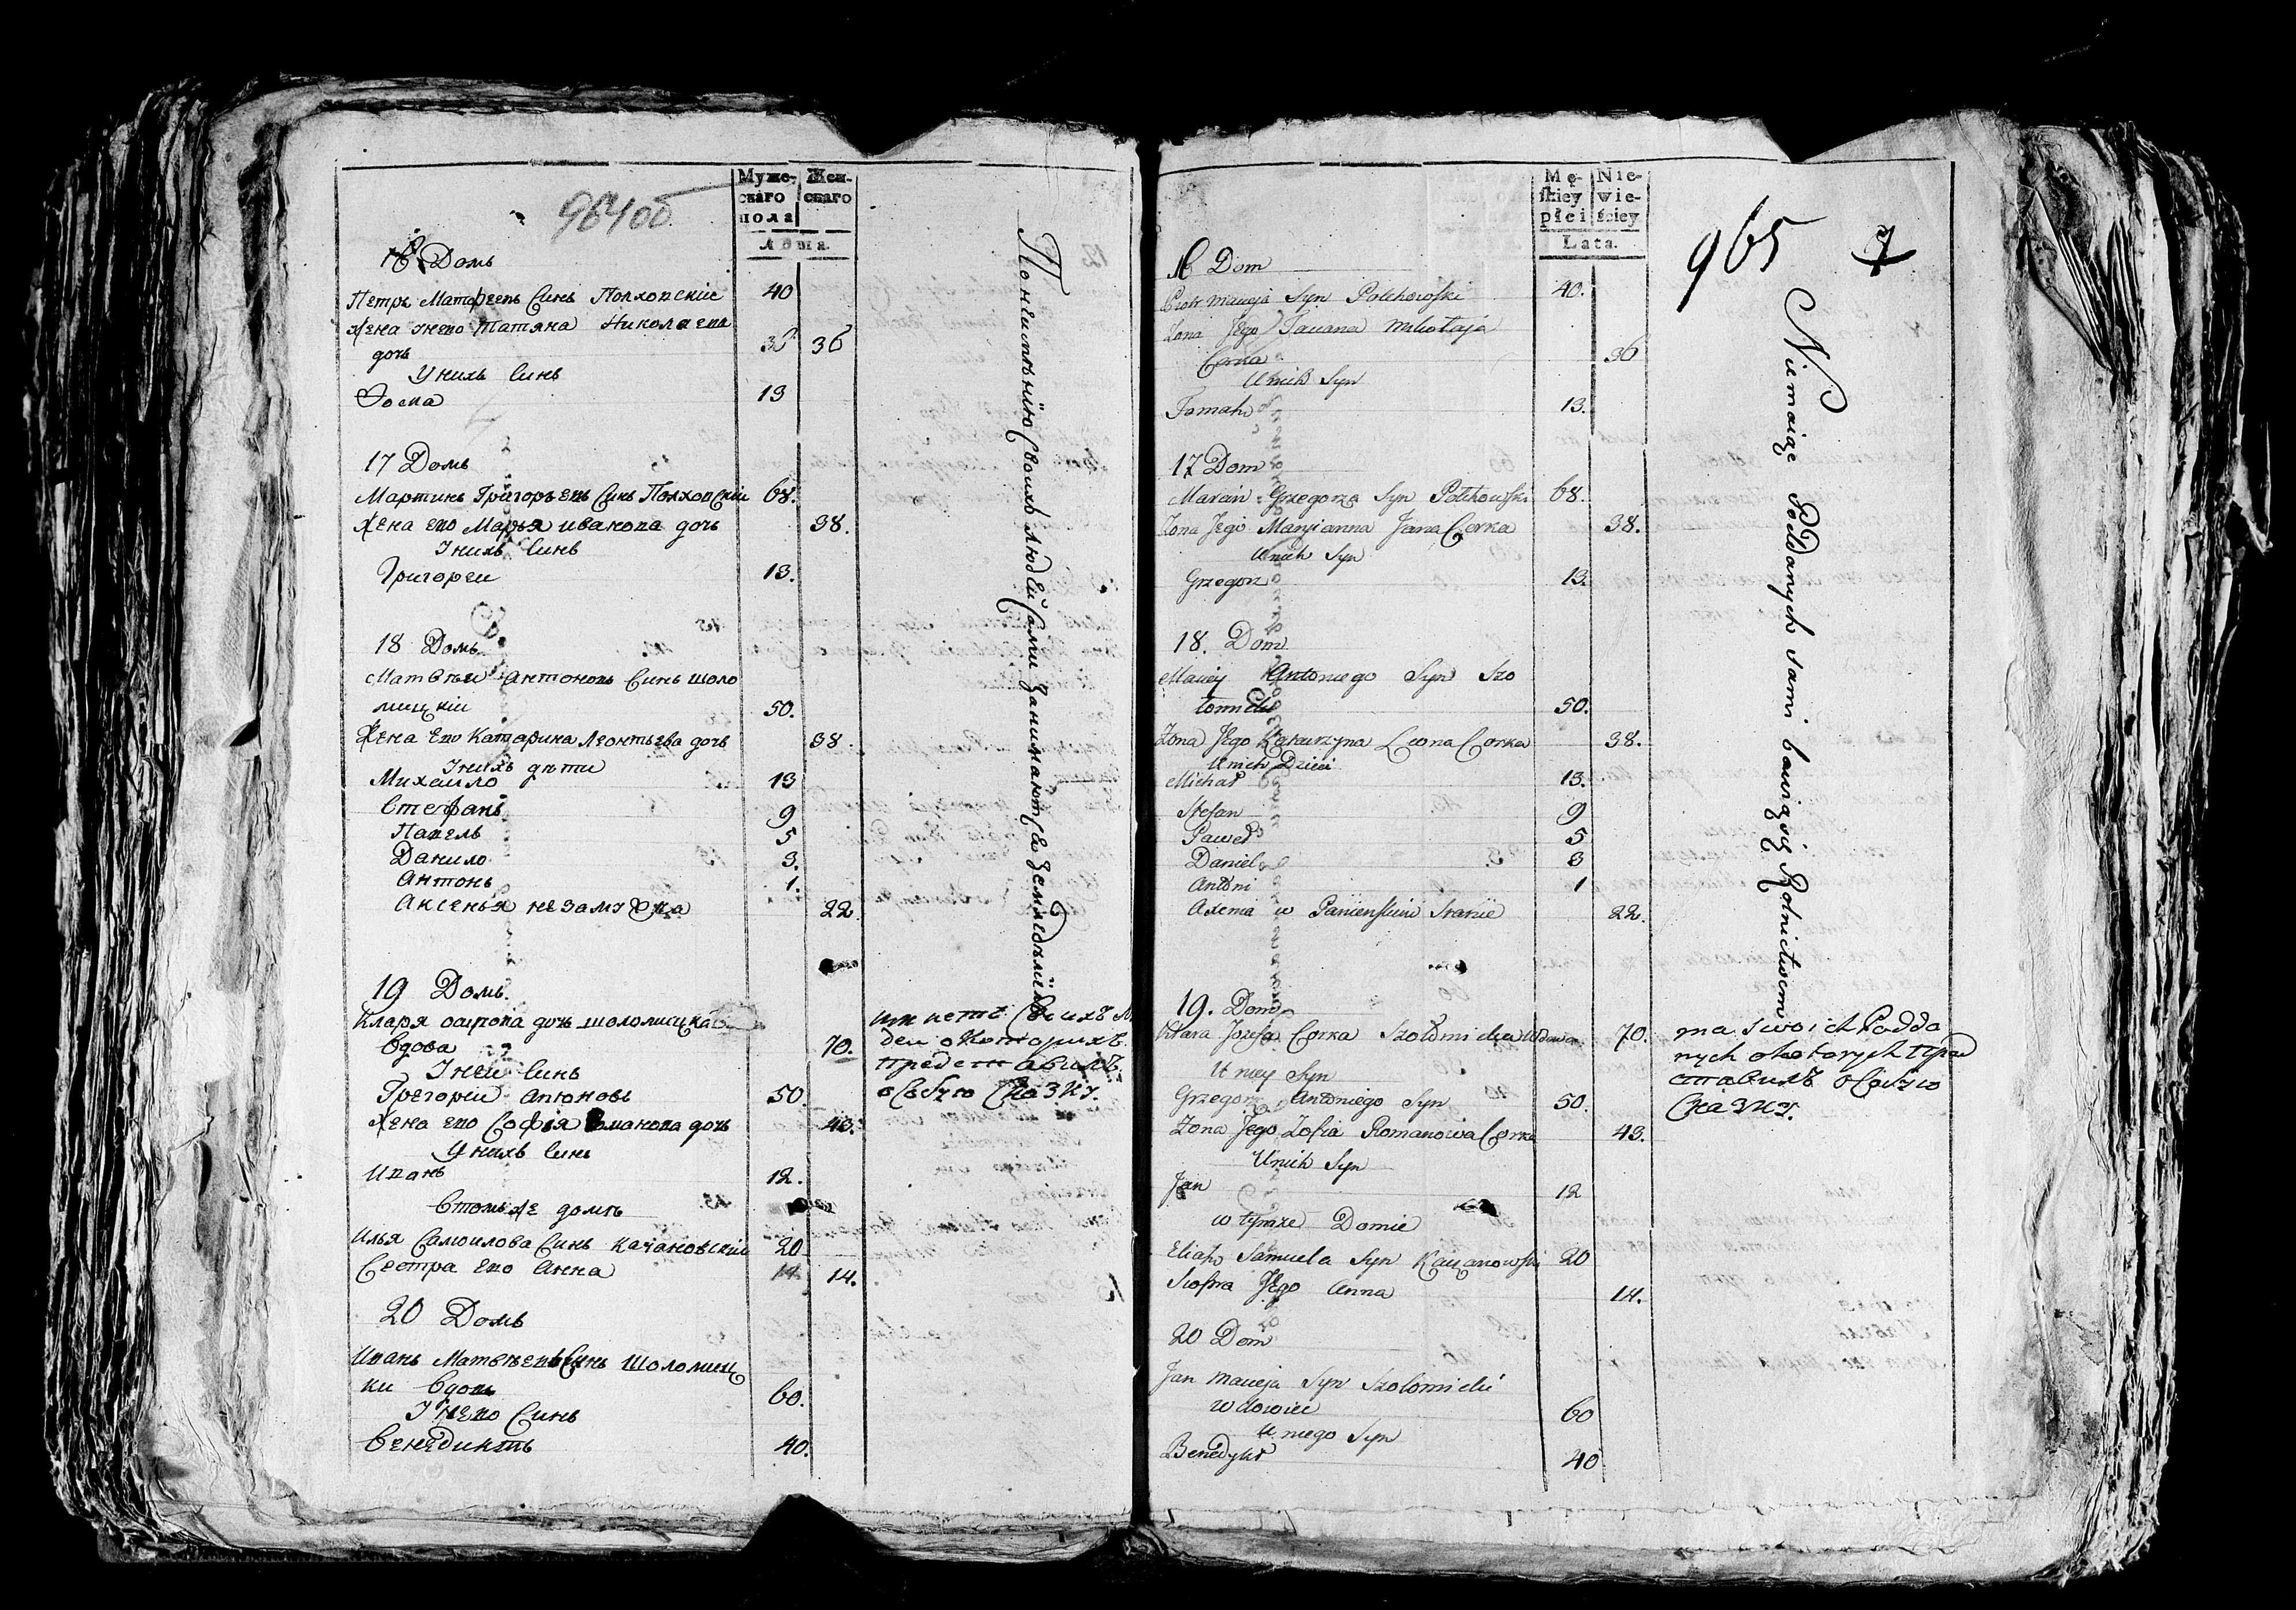 964 об
Муже-
скаго
пола
Жен-
скаго
Лѣта.
16 Домъ
Петръ Матфеевъ Синъ Полховскіе 40
Жена унего Татяна Николаева
дочь 36
Унихъ Синъ
Фома 13
17 Домъ
Мартинъ Григорьевъ Синъ Полховскіи 68.
Жена его Марья иванова дочь 38.
Унихъ Синъ
Григореи 13.
18 Домъ
Матвѣи Антоновъ Синъ шоло
мицкіи 50.
Жена Его Катарина Леонтьева дочь 38.
Унихъ дѣти
Михаило 13
Стефанъ 9
Павелъ 5
Данило 3.
Антонъ 1.
Аксенья незамужна 22
19 Домъ.
Клара осипова дочь шоломицкаё
Вдова 70.
Унеи Синъ
Грегореи Антоновъ 50.
Жена его Софія Романова дочь 43.
Унихъ Синъ
Иванъ 12.
Втомъже домѣ
Илья Самоилова Синъ Качановскіи 20
Сестра его Анна 14.
20 Домъ
Иванъ Матвѣевъ Синъ Шоломиц
ки Вдовъ 60.
Унего Синъ
Венедиктъ 40.
Понеимѣнію Своихъ людеи Сами занимаютСя земледѣліемъ
деи окоторихъ
представилъ
особую Сказку.
Mę-
skiey
płci
Nie-
wie-
ściey
Lata.
965 7
16 Dom
Piotr Macieja Syn Połchowski 40.
Zona Jego Taciana Mikołaja
Corka 36
Unich Syn
Tomasz 13.
17 Dom
Marcin Grzegorza Syn Połchowski 68.
Zona Jego Maryianna Jana Corka 38.
Unich Syn
Grzegorz 13.
18. Dom
Maciey Antoniego Syn Szo
łomicki 50.
Zona Jego Katarzyna Leona Corka 38.
Unich Dzieci
Michał 13.
Stefan 9
Paweł 5
Daniel 3
Antoni 1
Axenia w Panienskim Stanie 22.
19. Dom
Klara Jozefa Corka Szołomicka Wdowa 70.
U niey Syn
Grzegorz Antoniego Syn 50.
Zona Jego Zofia Romanowa Corka 43.
Unich Syn
Jan 12
w tymze Domie
Eliasz Samuela Syn Kaczanowski 20
Siostra Jego Anna 14.
20 Dom
Jan Macieja Syn Szołomicki
wdowiec 60
U niego Syn
Benedykt 40
Niemaiąc Poddanych sami bawią się Rolnictwem
ma swoich Podda
nych oktorych пред
ставилъ особую
Сказку.